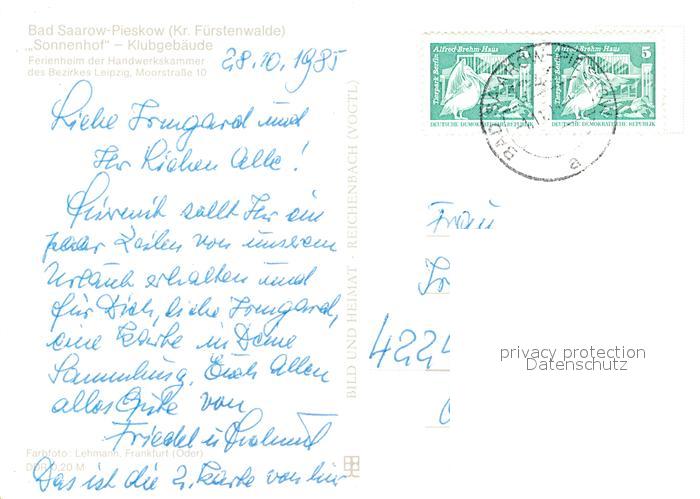 Bad Saarow-Pieskow (Kr. Fürstenwalde)
„Sonnenhof" – Klubgebäude
Ferienheim der Handwerkskammer
des Bezirkes Leipzig, Moorstraße 10
28.10.1985
Liebe Irmgard und
Ihr Lieben Alle!
Hiermit sollt Ihr ein
paar Zeilen von unserem
Urlaub erhalten und
für Dich, liebe Irmgard,
eine Karte in Deine
Sammlung. Euch Allen
alles Gute von
Friedel u.
Farbfoto: Lehmann, Frankfurt (Oder)
DDR 0,20 M
Das ist die 2. Karte von hier
BILD UND HEIMAT · REICHENBACH (VOGTL)
Alfred-Brehm-Haus
Tierpark Berlin
DEUTSCHE DEMOKRATISCHE REPUBLIK
Alfred-Brehm-Haus 5
Tierpark Berlin
DEUTSCHE DEMOKRATISCHE REPUBLIK
BAD SAAROW-PIESKOW
Frau
Ir
4224
privacy protection
Datenschutz